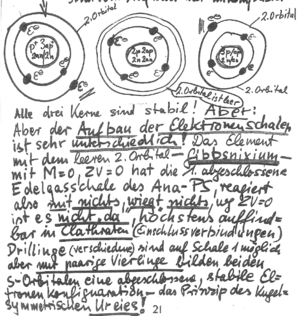 2.Orbital
2.Orbital
2.Orbital
2.Orbital ist leer
Alle drei Kerne sind stabil! Aber:
Aber der Aufbau der Elektronenschalen
ist sehr unterschiedlich! Das Element
mit dem leeren 2. Orbital – Gibbsnixium –
mit M=0, ZV=0 hat die 1. abgeschlossene
Edelgasschale des Ana-PS, reagiert
also mit nichts, wiegt nichts, ug ZV=0
ist es nicht da, höchstens auffind-
bar in Clathraten (Einschlussverbindungen)
Drillinge (verschiedene) sind auf Schale 1 möglich
aber mit paarige Vierlinge bilden beiden
S-Orbitalen eine abgeschlossene, stabile El-
tronenkonfiguration – das Prinzip des Kugel-
symmetrischen Ureies!
21